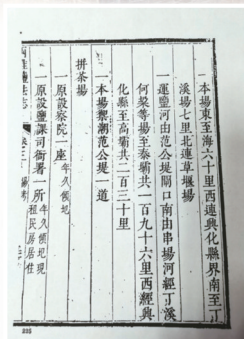 一本場東至海六十里西連興化縣界南至丁
溪場七里北連草堰場
一運鹽河由范公堤閘口南由串場河經丁溪
何垛等場至泰壩共一百九十六里西經興
化縣至高壩共二百三十里
一本場禦潮范公堤一道
拼茶場
一原設察院一座年久傾圮
一原設鹽課司衙署一所年久傾圮現租民房居住
兩淮鹽法志
卷三十